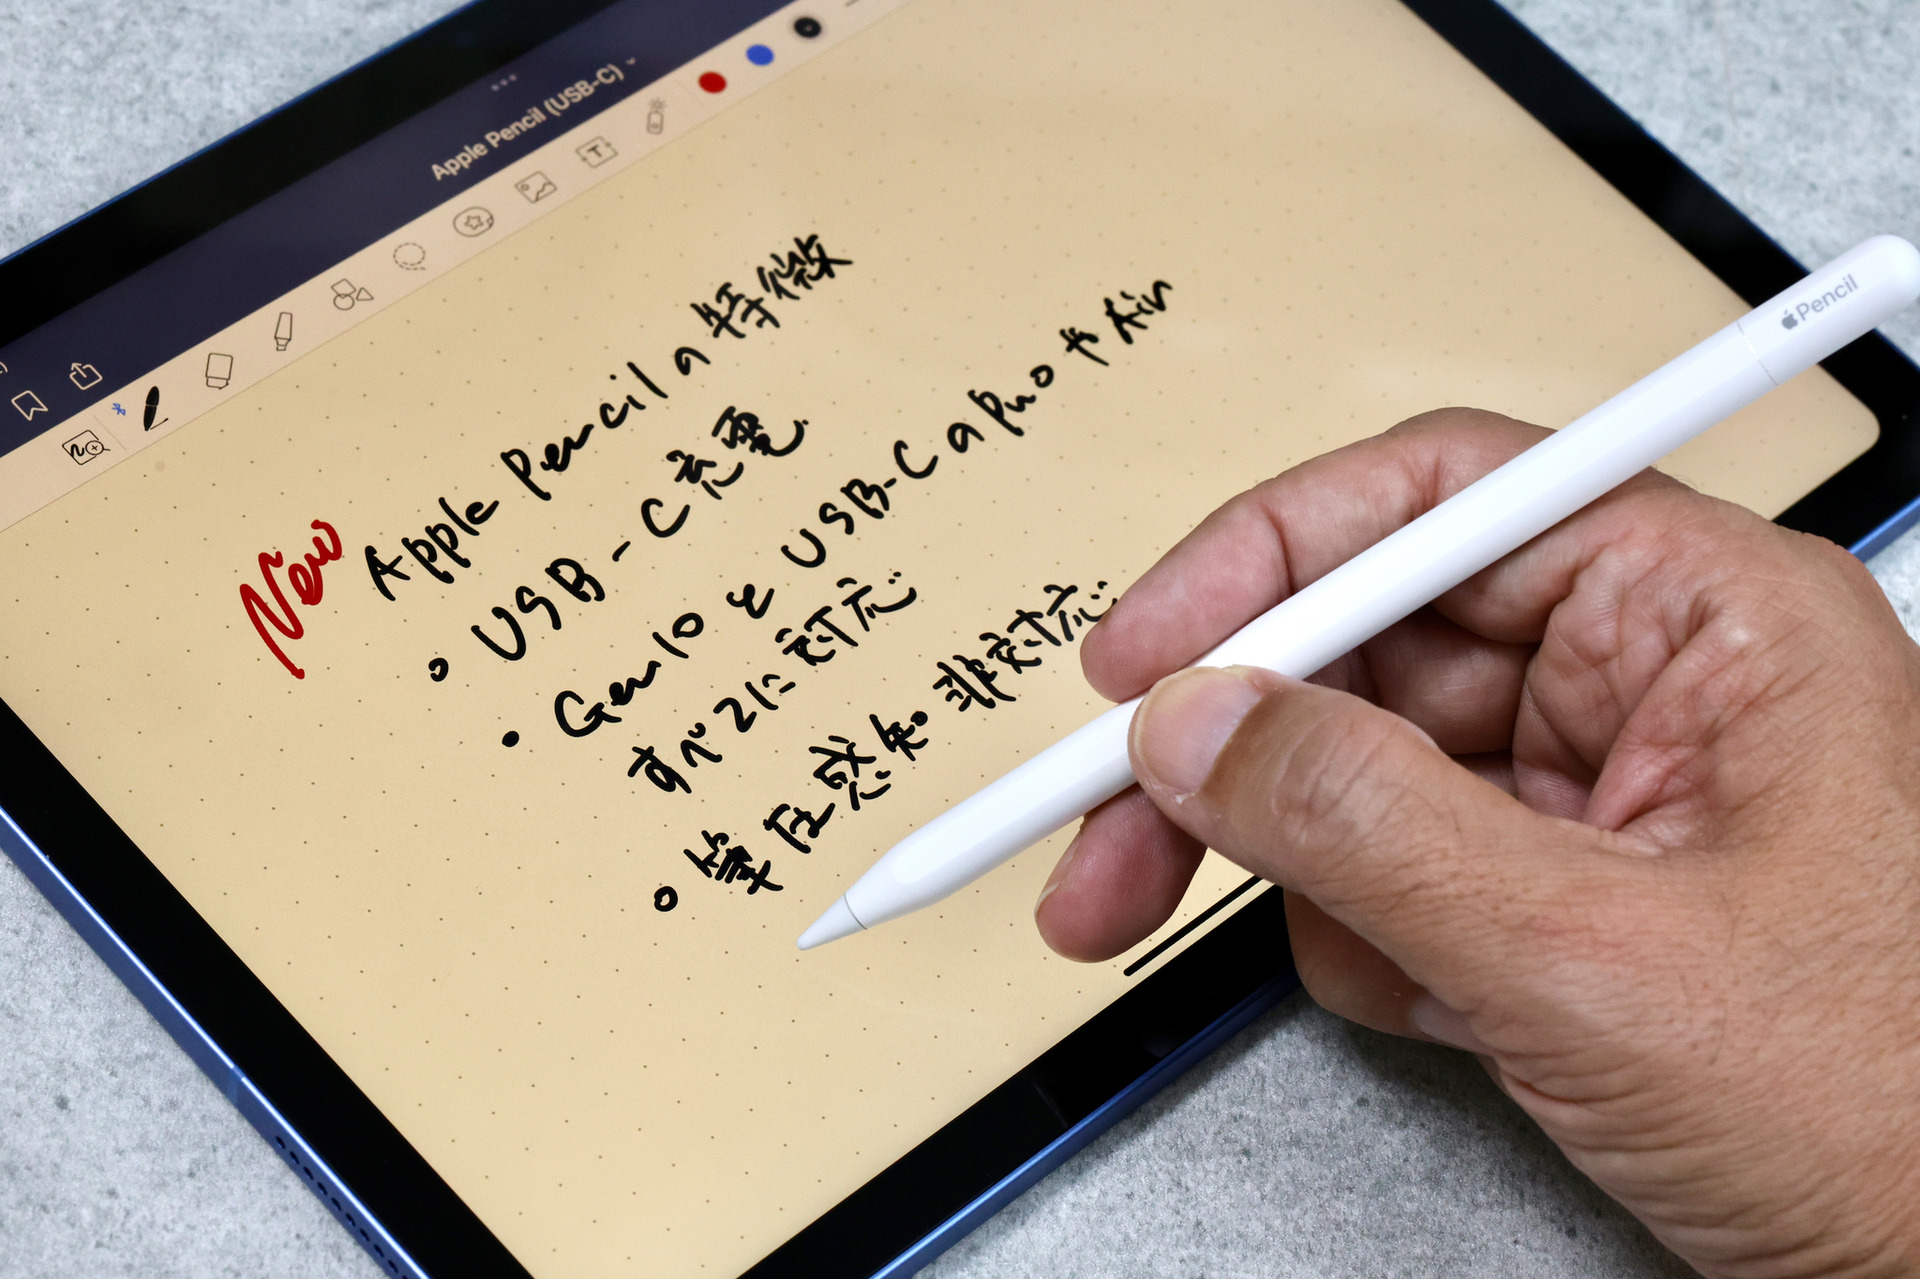 Apple Pencil (USB-C)
New Apple Pencilの特徴
USB-C充電
Gen10とUSB-CのProやAir
すべてに対応
筆圧感知非対応
Pencil